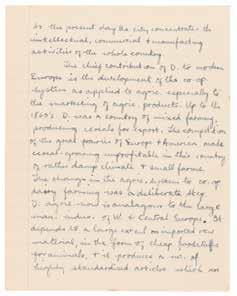 to the present day the city concentrates the
intellectual, commercial & manufacting
activities of the whole country.
The chief contribution of D. to modern
Europe is the development of the co-op
system as applied to agric. especially to
the marketing of agric. products. Up to the
1860's D. was a country of mixed farming,
producing cereals for export. The competition
of the great prairies of Europe & America made
cereal growing unprofitable in this country
of rather damp climate & small farms.
The change in the agric. system to co-op
dairy farming was a deliberate step.
D. agric. now is analogous to the large
man. indus. of W. & Central Europe. It
depends to a large extent on imported raw
material, in the form of cheap foodstuffs
for animals, & it produces a no. of
highly standardised articles which are